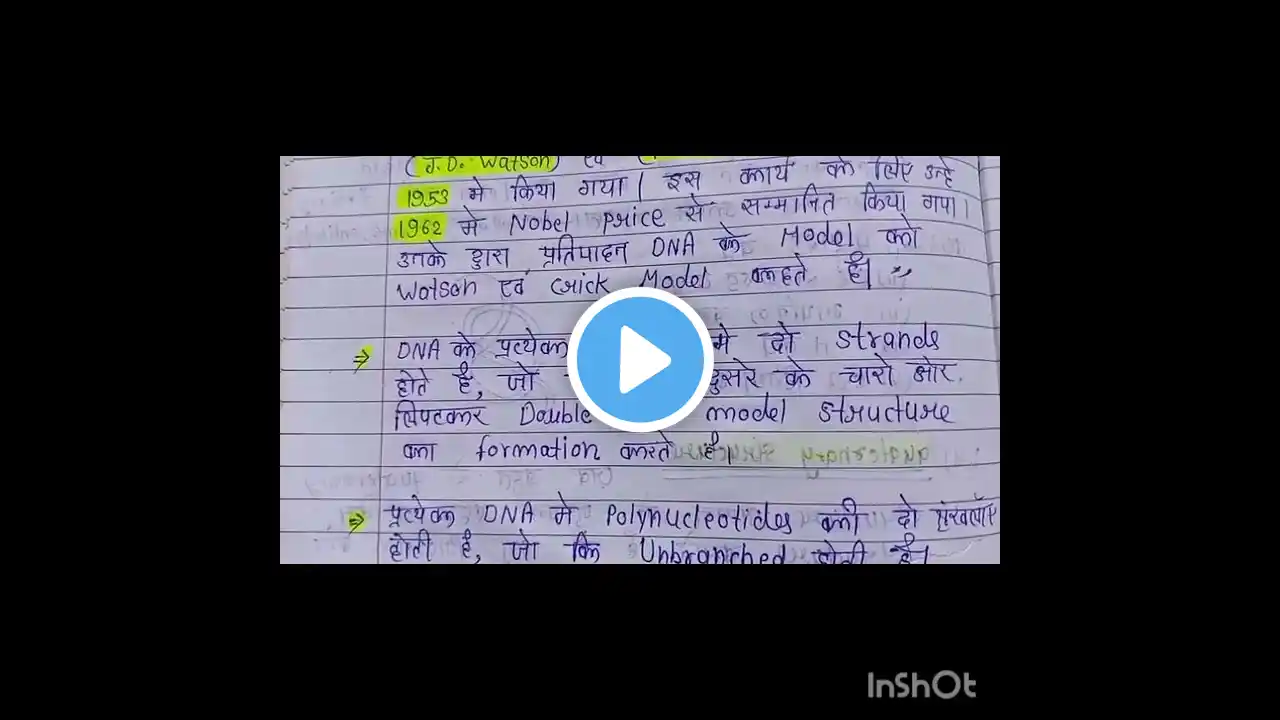 (J.D. Watson) एवं (
1953 मे किया गया| इस कार्य के लिए उन्हे
1962 मे Nobel Price से सम्मानित किया गया|
उनके द्वारा प्रतिपादन DNA के Model को
Watson एवं Crick Model कहते है|
⇒ DNA के प्रत्येक मे दो Strands
होते है, जो दुसरे के चारो ओर
लिपटकर Double model structure
का formation करते है|
⇒ प्रत्येक DNA मे Polynucleotides की दो
होती है, जो कि Unbranched होती है|
InShOt